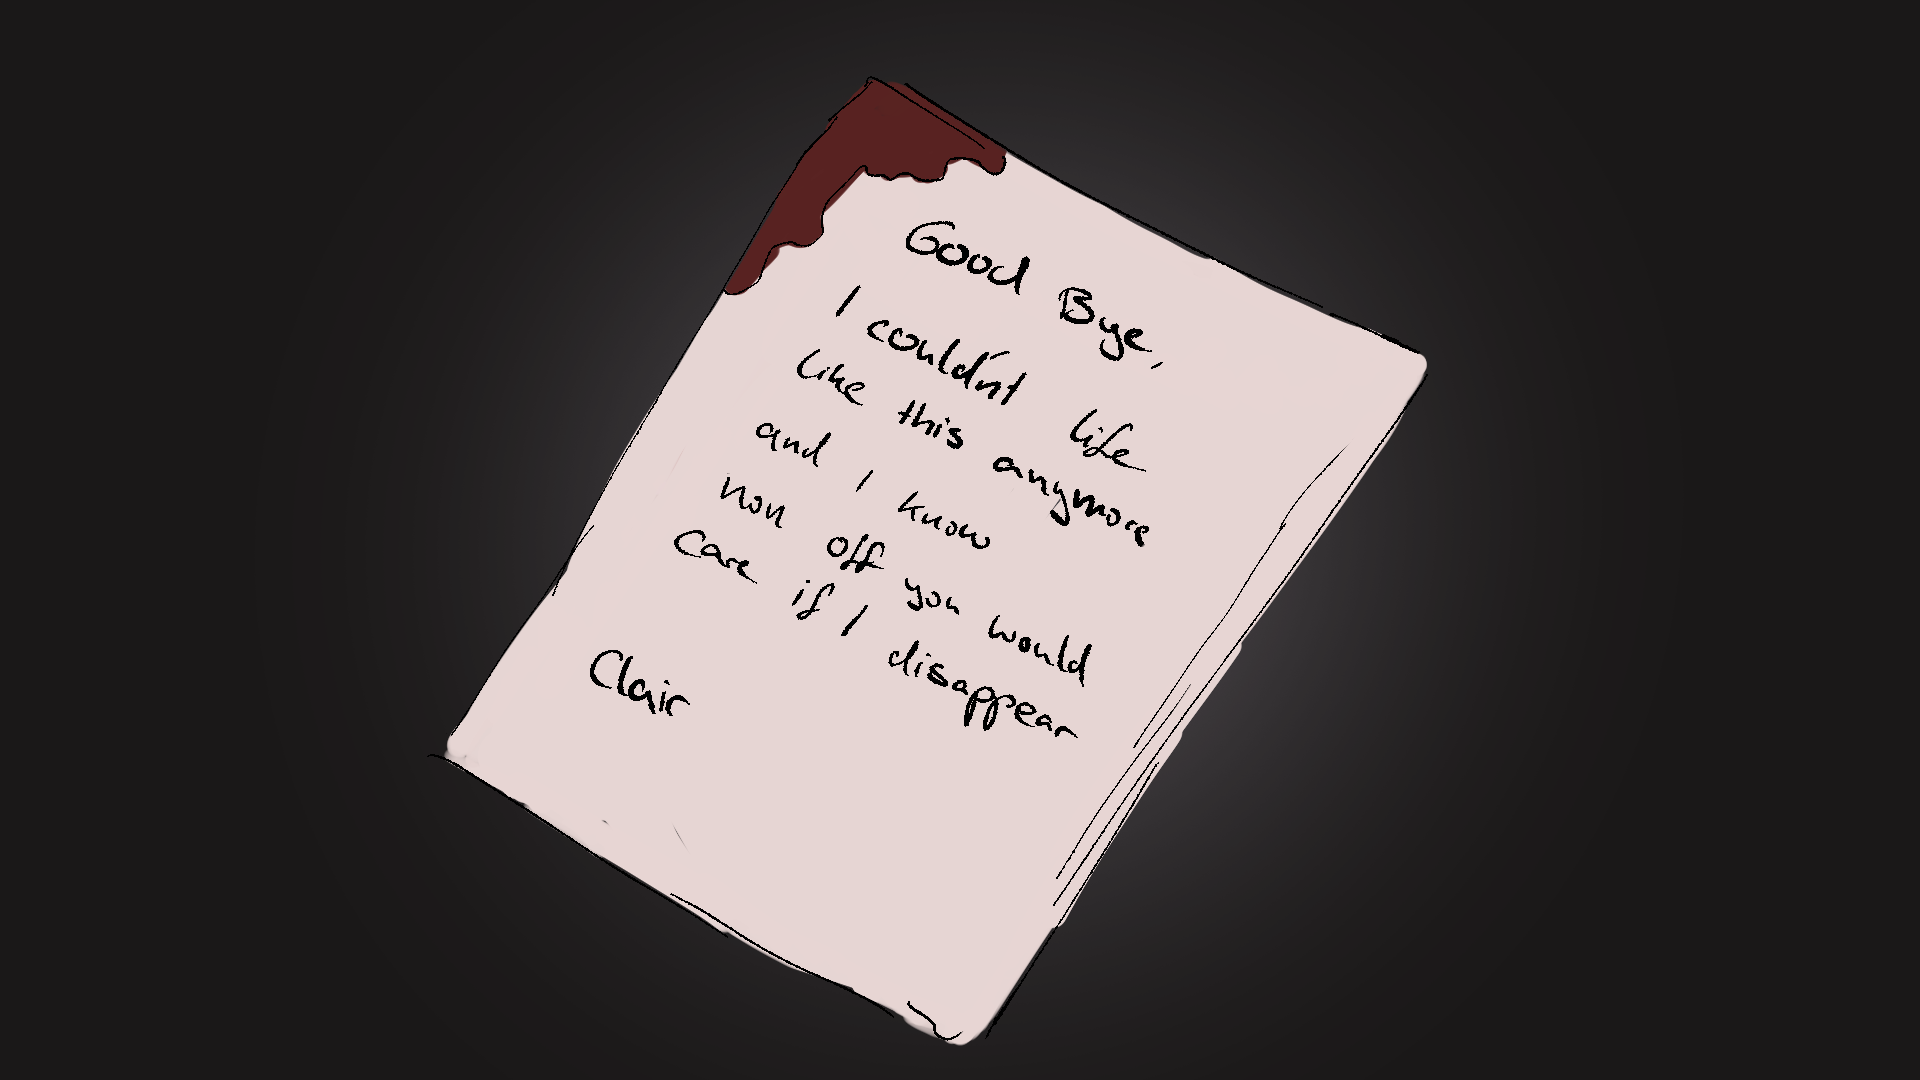 Good Bye,
I couldn't life
like this anymore
and I know
non off you would
care if I disappear
Clair